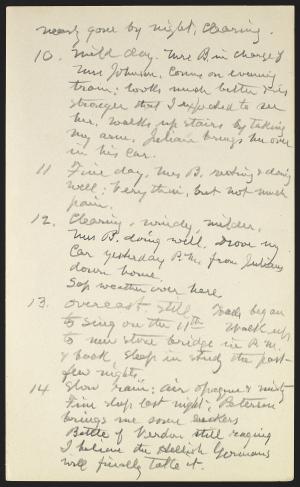 nearly gone by night, clearing.
10. Mild day. Mrs B. in charge of
Mrs Johnson, comes on evening
train; looks much better & is
stronger than I expected to see
her. Walks up stairs by taking
my arm. Julian brings me over
in his car.
11 Fine day, Mrs B. resting & doing
well; very thin, but not much
pain.
12. Clearing, windy, milder.
Mrs B. doing well. Drove my
Car yesterday P.M. from Julians
down home.
Sap weather over here
13. Overcast, still. Toads began
to sing on the 11th Walk up
to new stone bridge in P.M.
& back, sleep in study the past
few nights.
14. Slow rain; air opaque & misty
Fine sleep last night, Peterson
brings me some suckers
Battle of Verdun still raging
I believe the Hellish Germans
will finally take it.